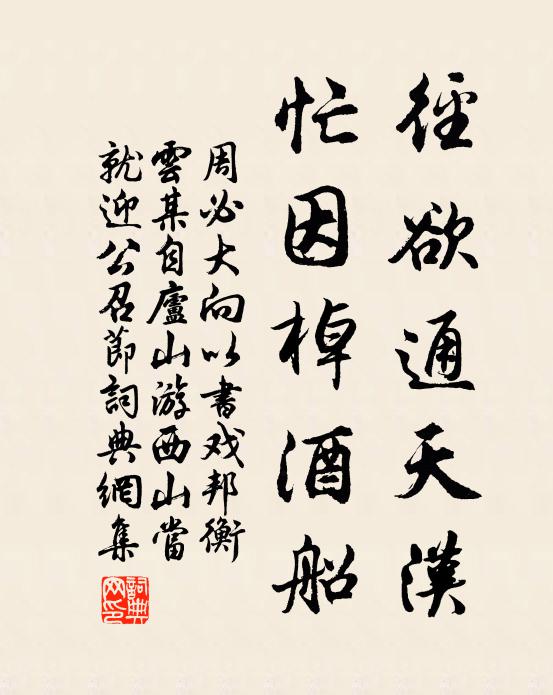 徑欲通天漢
忙因棹酒船
周必大向以書戏邦衡
雲某自廬山游西山當
就迎公召節詞典網集
詞典
网印